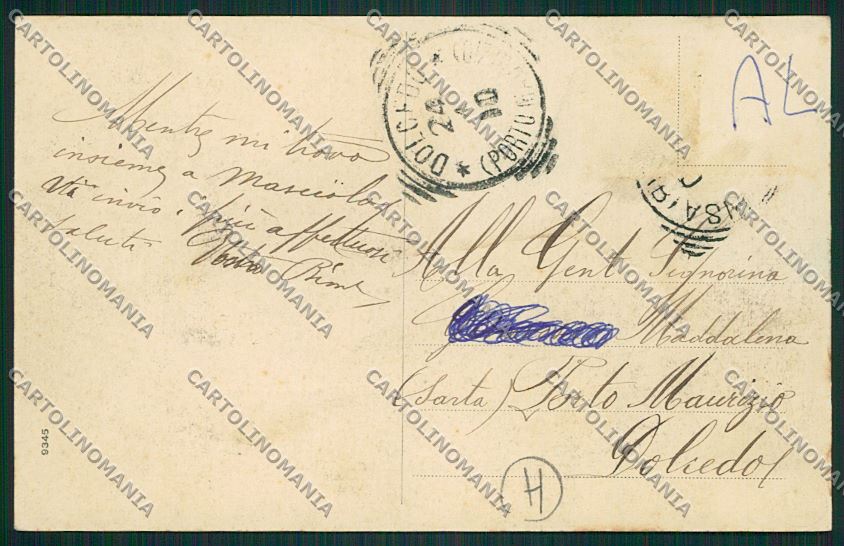 Mentre mi trovo
insieme a
Vi invio i più affettuosi
saluti
Vostro
DOLCEDO * (PORTO M
24
10
USA (B)
AL
Alla Gent Signorina
Maddalena
(Sarta) Porto Maurizio
Dolcedo
H
9345
CARTOLINOMANIA